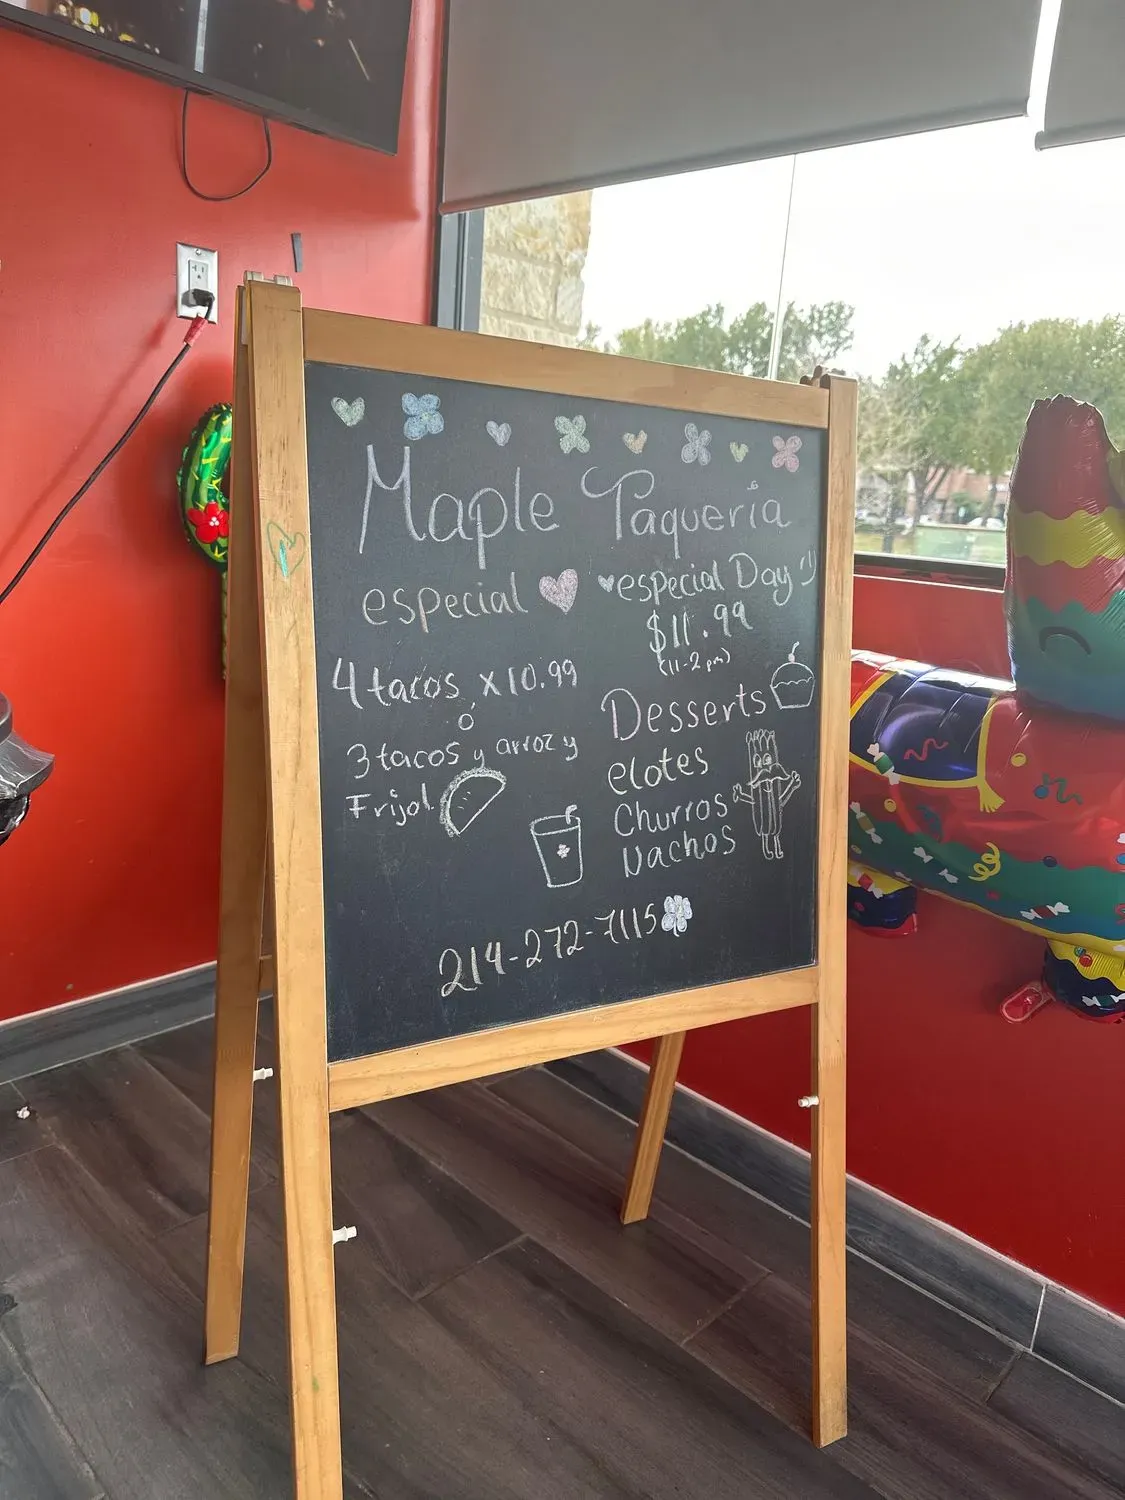 Maple Taquería
especial
4 tacos x 10.99
ó
3 tacos y arroz y
Frijol
especial Day :)
$11.99
(11-2 pm)
Desserts
elotes
Churros
Nachos
214-272-7115